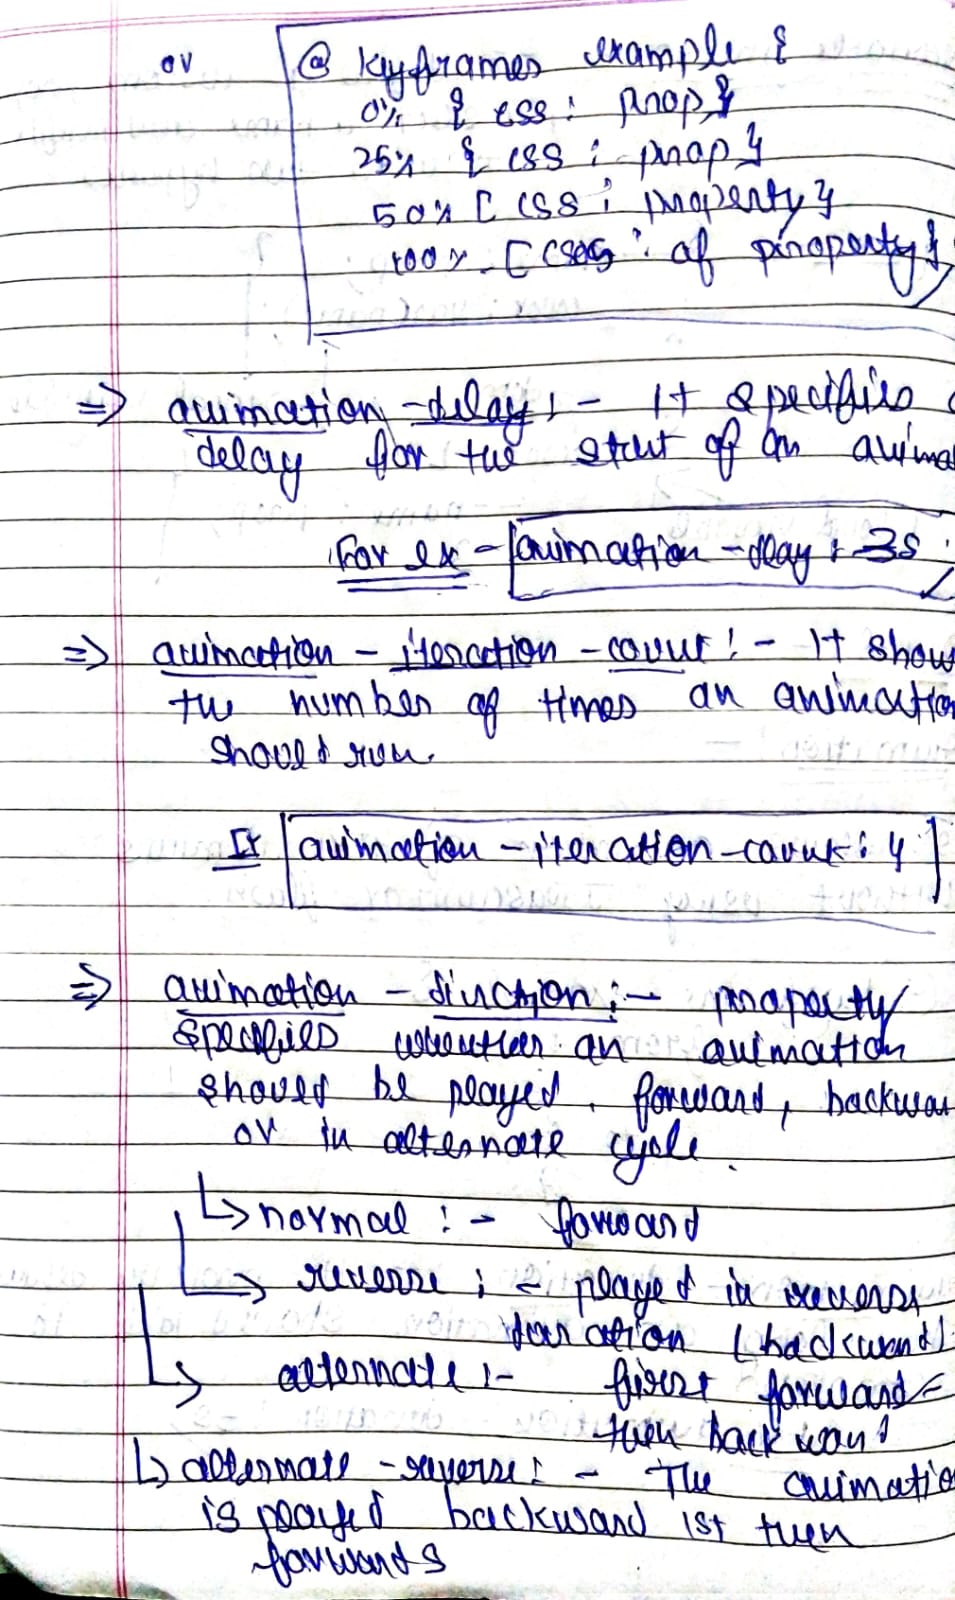 or
@ keyframes example {
0% { css : prop }
25% { css : prop }
50% [ css : property }
100% [ css : of property }
=> animation-delay :- It specifies
delay for the start of an anima
For ex - animation-delay : 3s ;
=> animation - iteration - count :- It show
the number of times an animation
should run.
animation - iteration - count : 4
=> animation - direction :- property
specifies whether an animation
should be played forward, backwar
or in alternate cycle.
↳ normal :- forward
↳ reverse :- played in reverse
(backward)
↳ alternate :- first forward
then backward
↳ alternate - reverse :- The animatio
is played backward 1st then
forwards